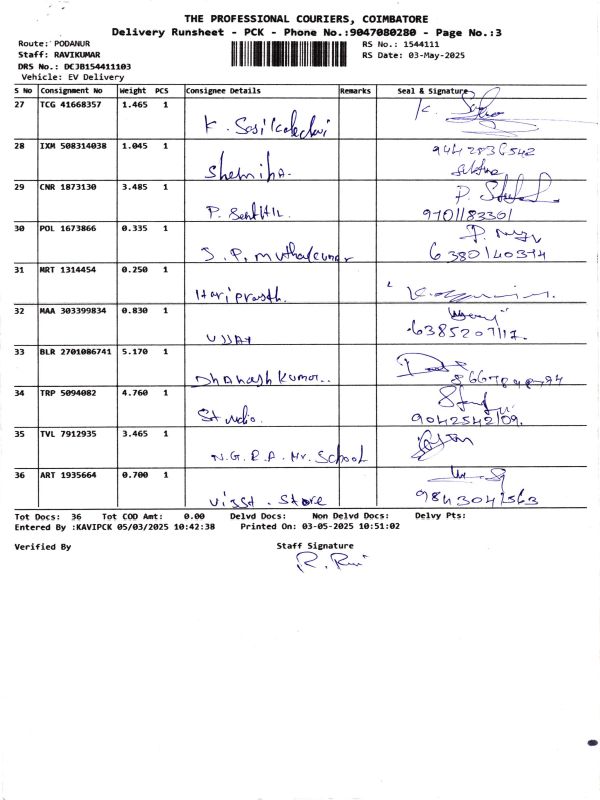 THE PROFESSIONAL COURIERS, COIMBATORE
Delivery Runsheet - PCK - Phone No.:9047080280 - Page No.:3
Route: PODANUR
RS No.: 1544111
Staff: RAVIKUMAR
RS Date: 03-May-2025
DRS No.: DCJB154411103
Vehicle: EV Delivery
S No Consignment No Weight PCS Consignee Details Remarks Seal & Signature
27 TCG 41668357 1.465 1
K.
28 IXM 508314038 1.045 1 9442836542
Shemiha.
29 CNR 1873130 3.485 1
P. Senthil. 9701183301
30 POL 1673866 0.335 1
S. P. Muthukumar
31 MRT 1314454 0.250 1
Hariprasth.
32 MAA 303399834 0.830 1
6385207117.
33 BLR 2701086741 5.170 1
Dhanash Kumar..
34 TRP 5094082 4.760 1
Studio. 9042542109.
35 TVL 7912935 3.465 1
N.G.R.A. Hr. School
36 ART 1935664 0.700 1
Store
Tot Docs: 36 Tot COD Amt: 0.00 Delvd Docs: Non Delvd Docs: Delvy Pts:
Entered By :KAVIPCK 05/03/2025 10:42:38 Printed On: 03-05-2025 10:51:02
Verified By Staff Signature